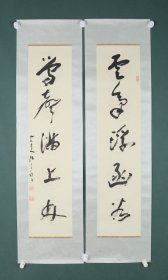 雲氣浮函谷
鶯聲滿上林